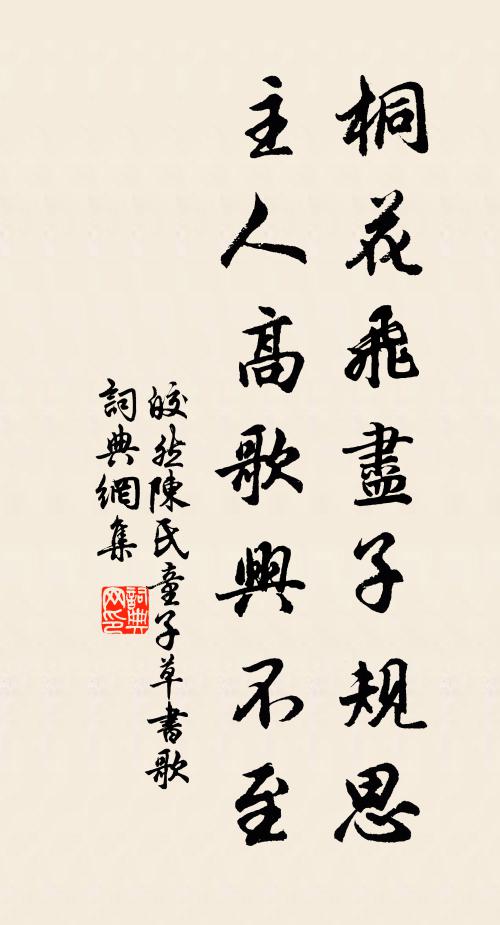 桐花飛盡子規思
主人高歌興不至
皎然陳氏童子草書歌
詞典網集
詞典網印